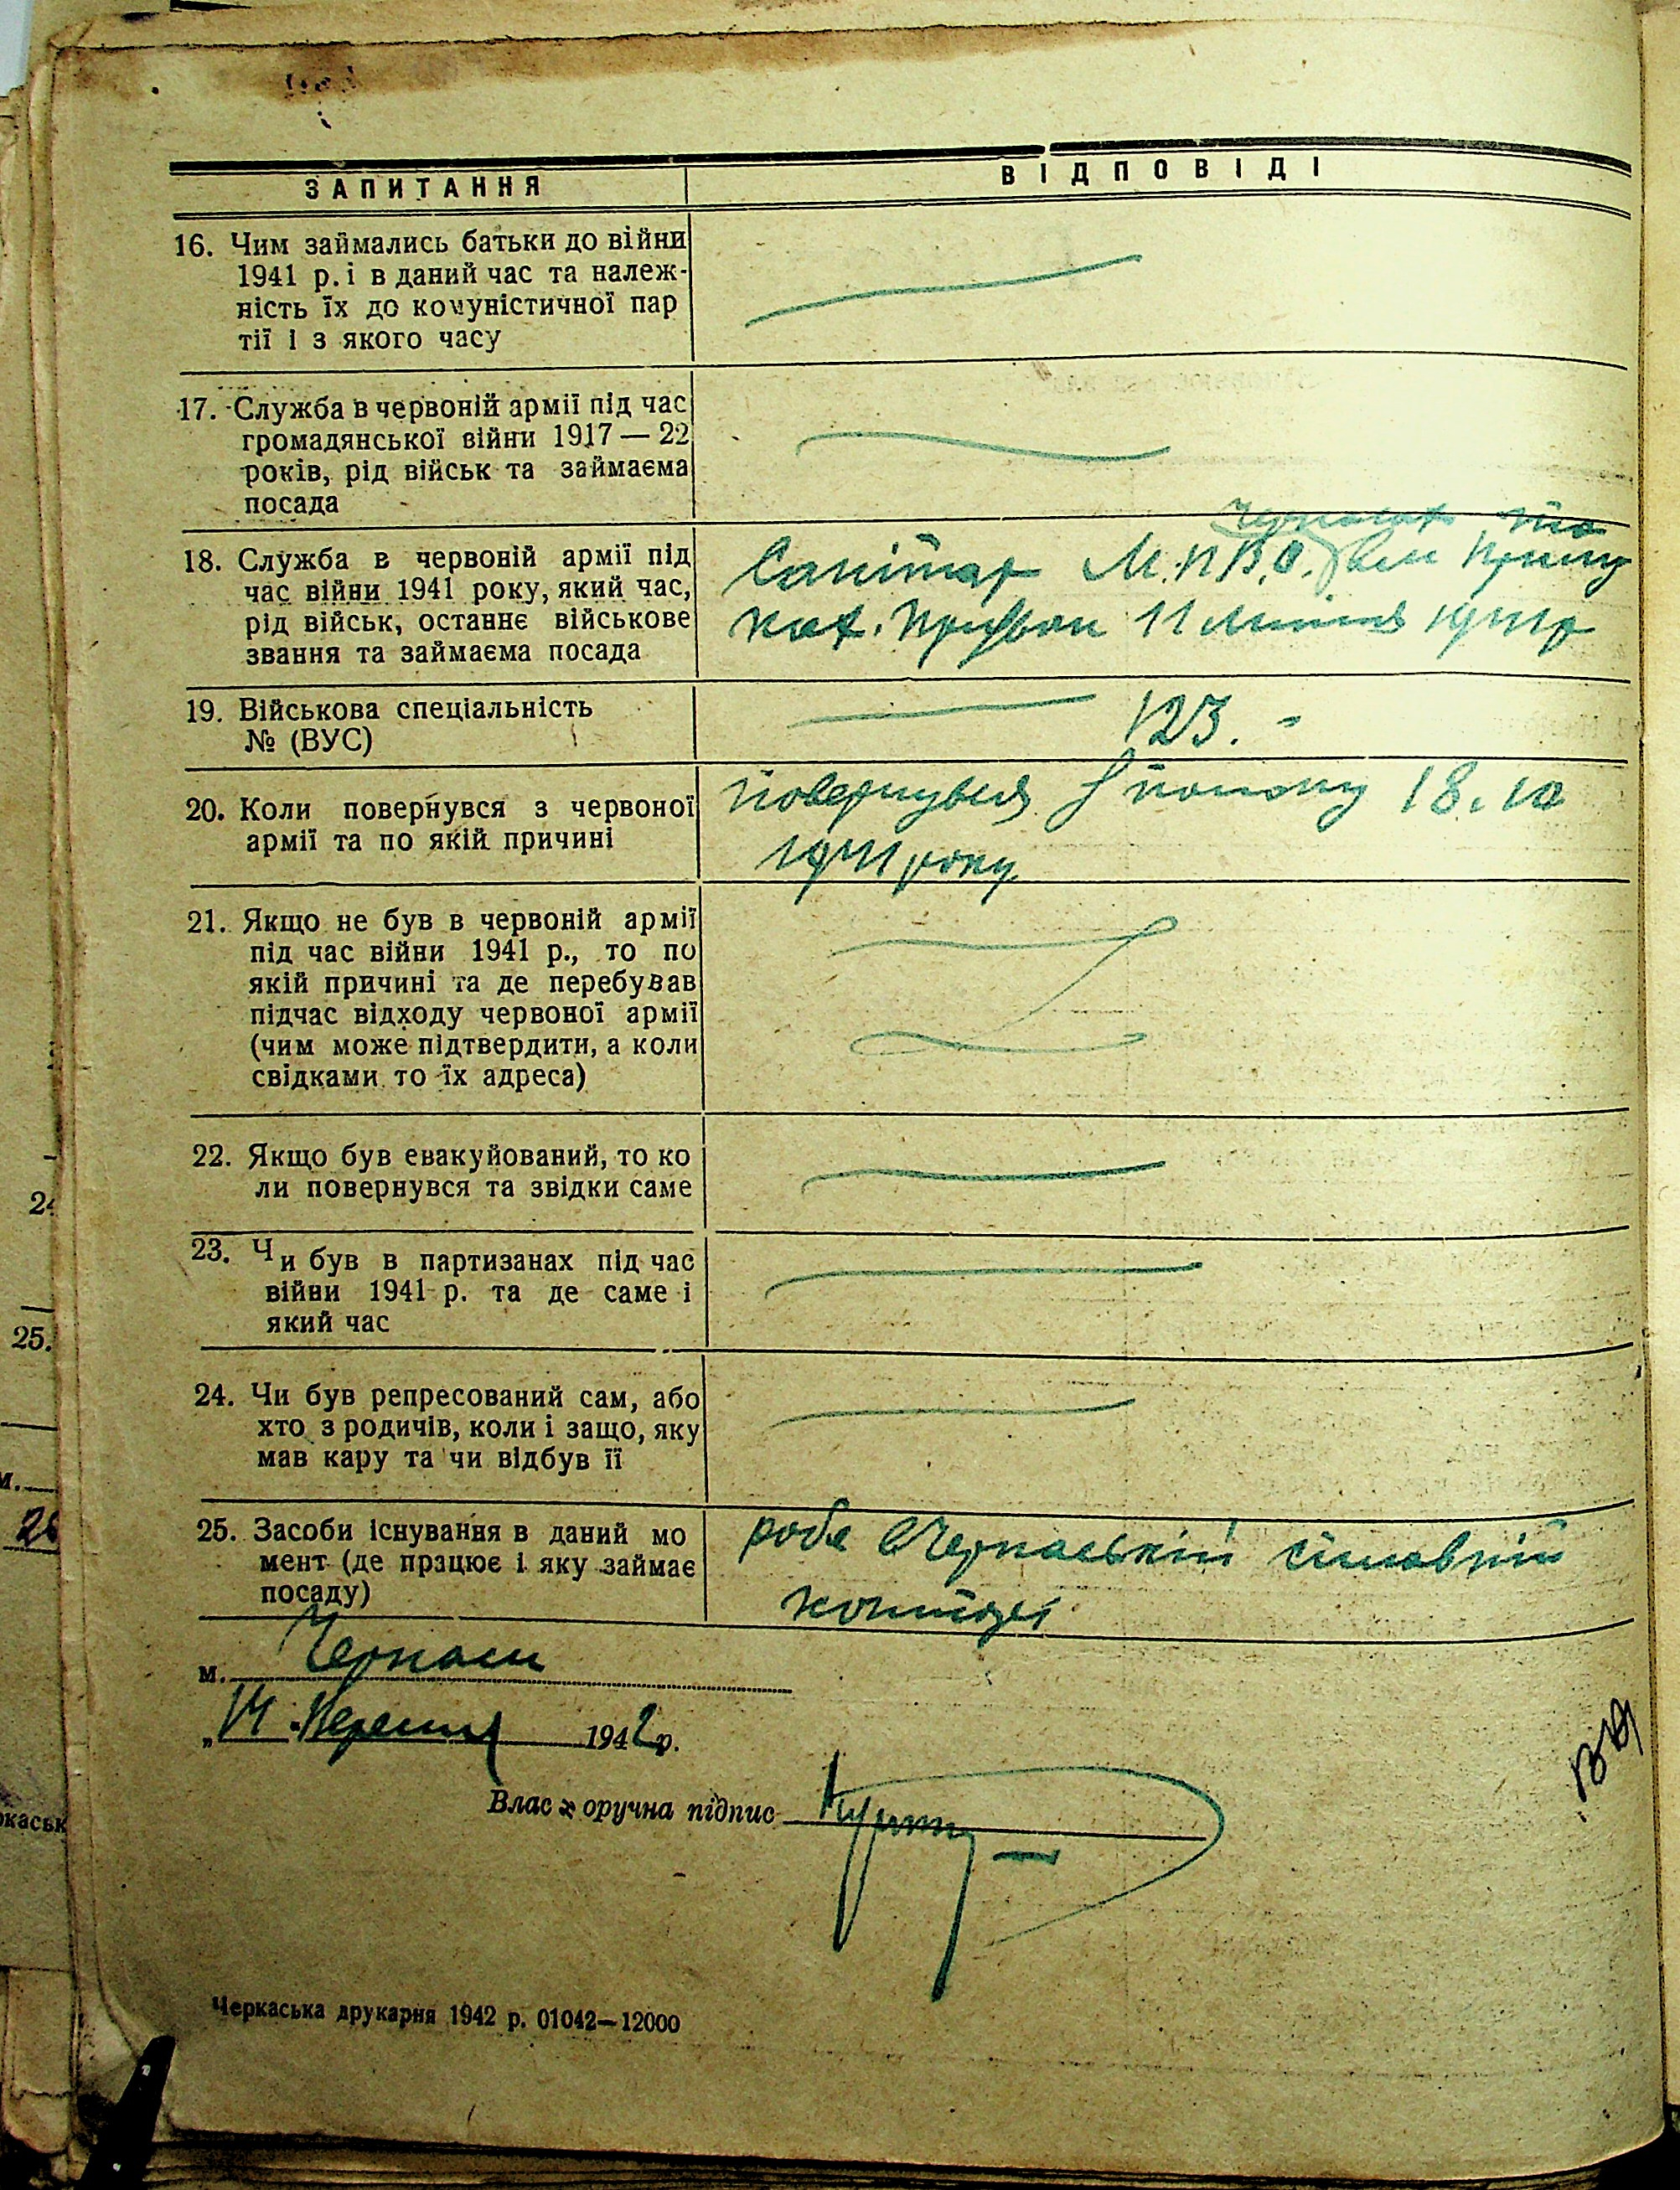 ЗАПИТАННЯ
ВІДПОВІДІ
16. Чим займались батьки до війни
1941 р. і в даний час та належ-
ність їх до комуністичної пар
тії і з якого часу
17. Служба в червоній армії під час
громадянської війни 1917 — 22
років, рід військ та займаєма
посада
18. Служба в червоній армії під
час війни 1941 року, який час,
рід військ, останнє військове
звання та займаєма посада
Санітар М.П.В.О.
11 липня 1941 р
19. Військова спеціальність
№ (ВУС)
123. -
20. Коли повернувся з червоної
армії та по якій причині
повернувся з полону 18. 10
1941 року
21. Якщо не був в червоній армії
під час війни 1941 р., то по
якій причині та де перебував
підчас відходу червоної армії
(чим може підтвердити, а коли
свідками то їх адреса)
22. Якщо був евакуйований, то ко
ли повернувся та звідки саме
23. Чи був в партизанах під час
війни 1941 р. та де саме і
який час
24. Чи був репресований сам, або
хто з родичів, коли і защо, яку
мав кару та чи відбув її
25. Засоби існування в даний мо
мент (де працює і яку займає
посаду)
Черкаській
конторі
м. Черкаси
„14 " Вересня 1942 р.
Влас оручна підпис
Черкаська друкарня 1942 р. 01042—12000
24
25.
м.
26
ркаськ